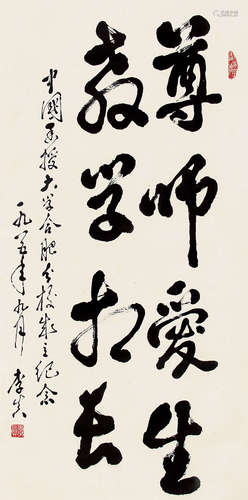 尊师爱生
教学相长
中国函授大学合肥分校成立纪念
一九八五年九月 李